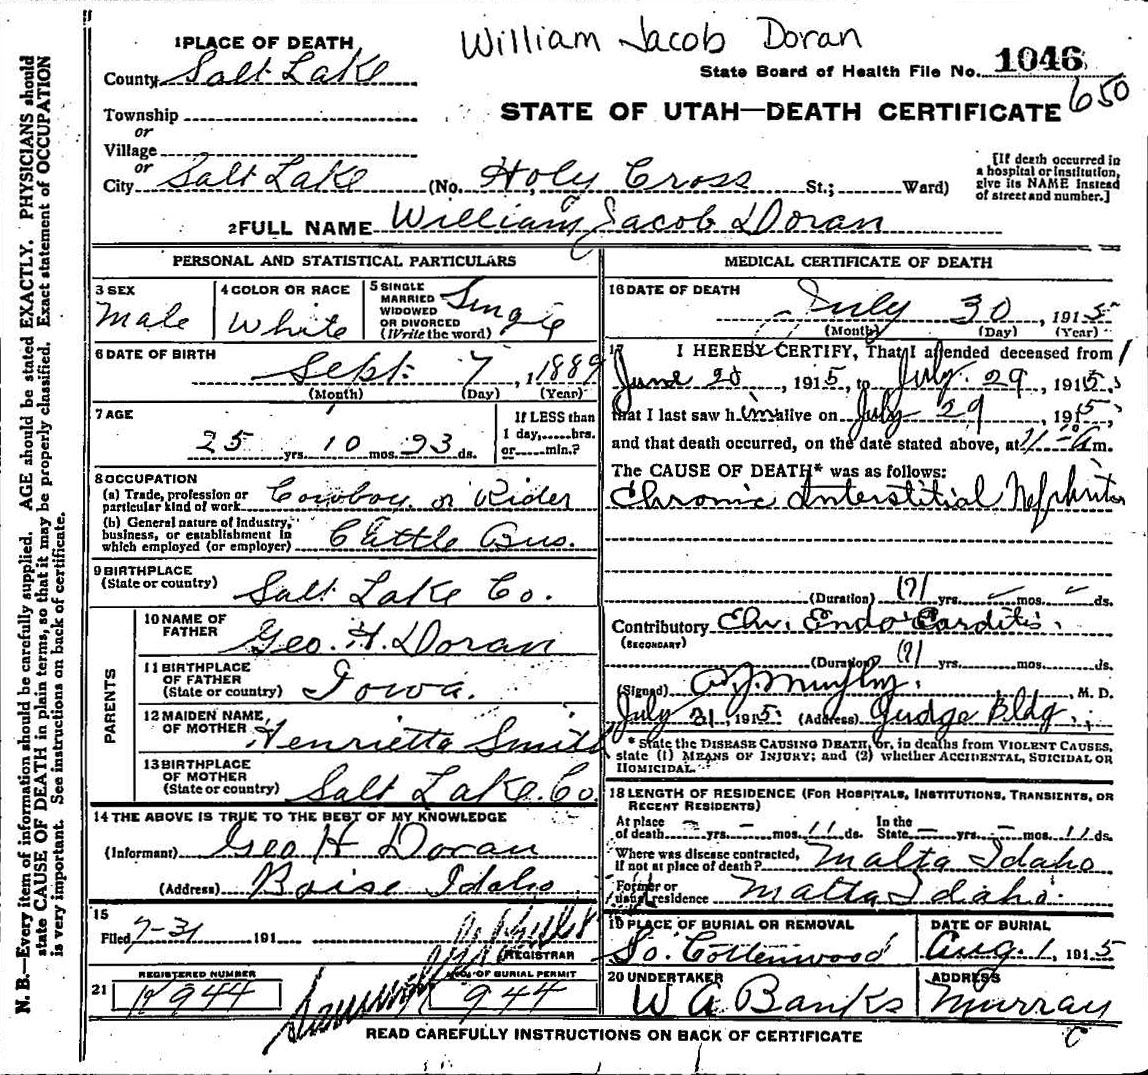 William Jacob Doran
1 PLACE OF DEATH
County Salt Lake
State Board of Health File No. 1046
650
Township
or
Village
or
STATE OF UTAH—DEATH CERTIFICATE
City Salt Lake (No. Holy Cross St.; Ward)
[If death occurred in
a hospital or institution,
give its NAME instead
of street and number.]
2 FULL NAME William Jacob Doran
PERSONAL AND STATISTICAL PARTICULARS
3 SEX
Male
4 COLOR OR RACE
White
5 SINGLE
MARRIED
WIDOWED
OR DIVORCED
(Write the word)
Single
6 DATE OF BIRTH
Sept. 7, 1889
(Month) (Day) (Year)
7 AGE
25 yrs. 10 mos. 23 ds.
If LESS than
1 day,.....hrs.
or.....min.?
8 OCCUPATION
(a) Trade, profession or
particular kind of work Cowboy or Rider
(b) General nature of industry,
business, or establishment in
which employed (or employer) Cattle Bus.
9 BIRTHPLACE
(State or country) Salt Lake Co.
PARENTS
10 NAME OF
FATHER Geo. H. Doran
11 BIRTHPLACE
OF FATHER
(State or country) Iowa.
12 MAIDEN NAME
OF MOTHER Henrietta Smith
13 BIRTHPLACE
OF MOTHER
(State or country) Salt Lake Co.
14 THE ABOVE IS TRUE TO THE BEST OF MY KNOWLEDGE
(Informant) Geo H Doran
(Address) Boise Idaho
15
Filed 7-31 191
REGISTRAR
REGISTERED NUMBER
NO. OF BURIAL PERMIT
21 944 944
MEDICAL CERTIFICATE OF DEATH
16 DATE OF DEATH
July 30, 1915
(Month) (Day) (Year)
17 I HEREBY CERTIFY, That I attended deceased from
June 20, 1915, to July 29, 1915;
that I last saw him alive on July 29 1915;
and that death occurred, on the date stated above, at 11 A m.
The CAUSE OF DEATH* was as follows:
Chronic Interstitial Nephritis
(Duration) (?) yrs. mos. ds.
Contributory Chr. Endo Carditis.
(SECONDARY)
(Duration) (?) yrs. mos. ds.
(Signed) Murphy, M. D.
July 31, 1915. (Address) Judge Bldg.
* State the DISEASE CAUSING DEATH, or, in deaths from VIOLENT CAUSES,
state (1) MEANS OF INJURY; and (2) whether ACCIDENTAL, SUICIDAL OR
HOMICIDAL.
18 LENGTH OF RESIDENCE (FOR HOSPITALS, INSTITUTIONS, TRANSIENTS, OR
RECENT RESIDENTS)
At place
of death – yrs. – mos. 11 ds.
In the
State – yrs. – mos. 11 ds.
Where was disease contracted,
if not at place of death? Malta Idaho
Former or
usual residence Malta Idaho.
19 PLACE OF BURIAL OR REMOVAL
So. Cottenwood
DATE OF BURIAL
Aug. 1, 1915
20 UNDERTAKER
W A Banks
ADDRESS
Murray
READ CAREFULLY INSTRUCTIONS ON BACK OF CERTIFICATE
N. B.—Every item of information should be carefully supplied. AGE should be stated EXACTLY. PHYSICIANS should
state CAUSE OF DEATH in plain terms, so that it may be properly classified. Exact statement of OCCUPATION
is very important. See instructions on back of certificate.